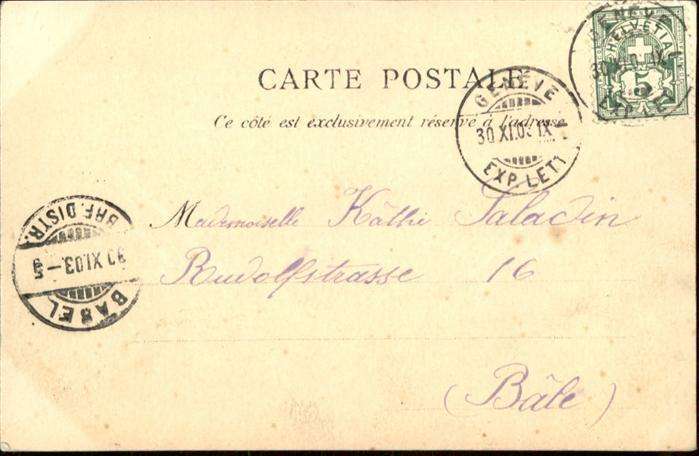 CARTE POSTALE
Ce côté est exclusivement réservé à l'adresse
HELVETIA
5
GENÈVE
30 XI.03 IX
EXP. LETT
BRF. DISTR.
30 XI.03 - 5
BASEL
Mademoiselle Käthi Saladin
Rudolfstrasse 16
(Bâle)